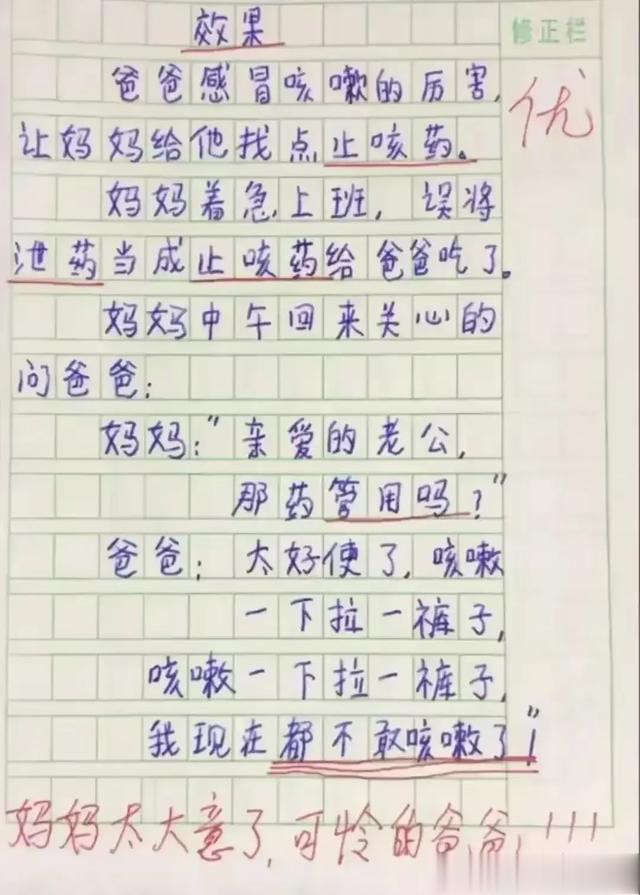 效果
修正栏
爸爸感冒咳嗽的厉害,
优
让妈妈给他找点止咳药。
妈妈着急上班, 误将
泄药当成止咳药给爸爸吃了。
妈妈中午回来关心的
问爸爸:
妈妈:"亲爱的老公,
那药管用吗?"
爸爸: 太好使了, 咳嗽
一下拉一裤子,
咳嗽一下拉一裤子,
我现在都不敢咳嗽了!"
妈妈太大意了,可怜的爸爸,!!!